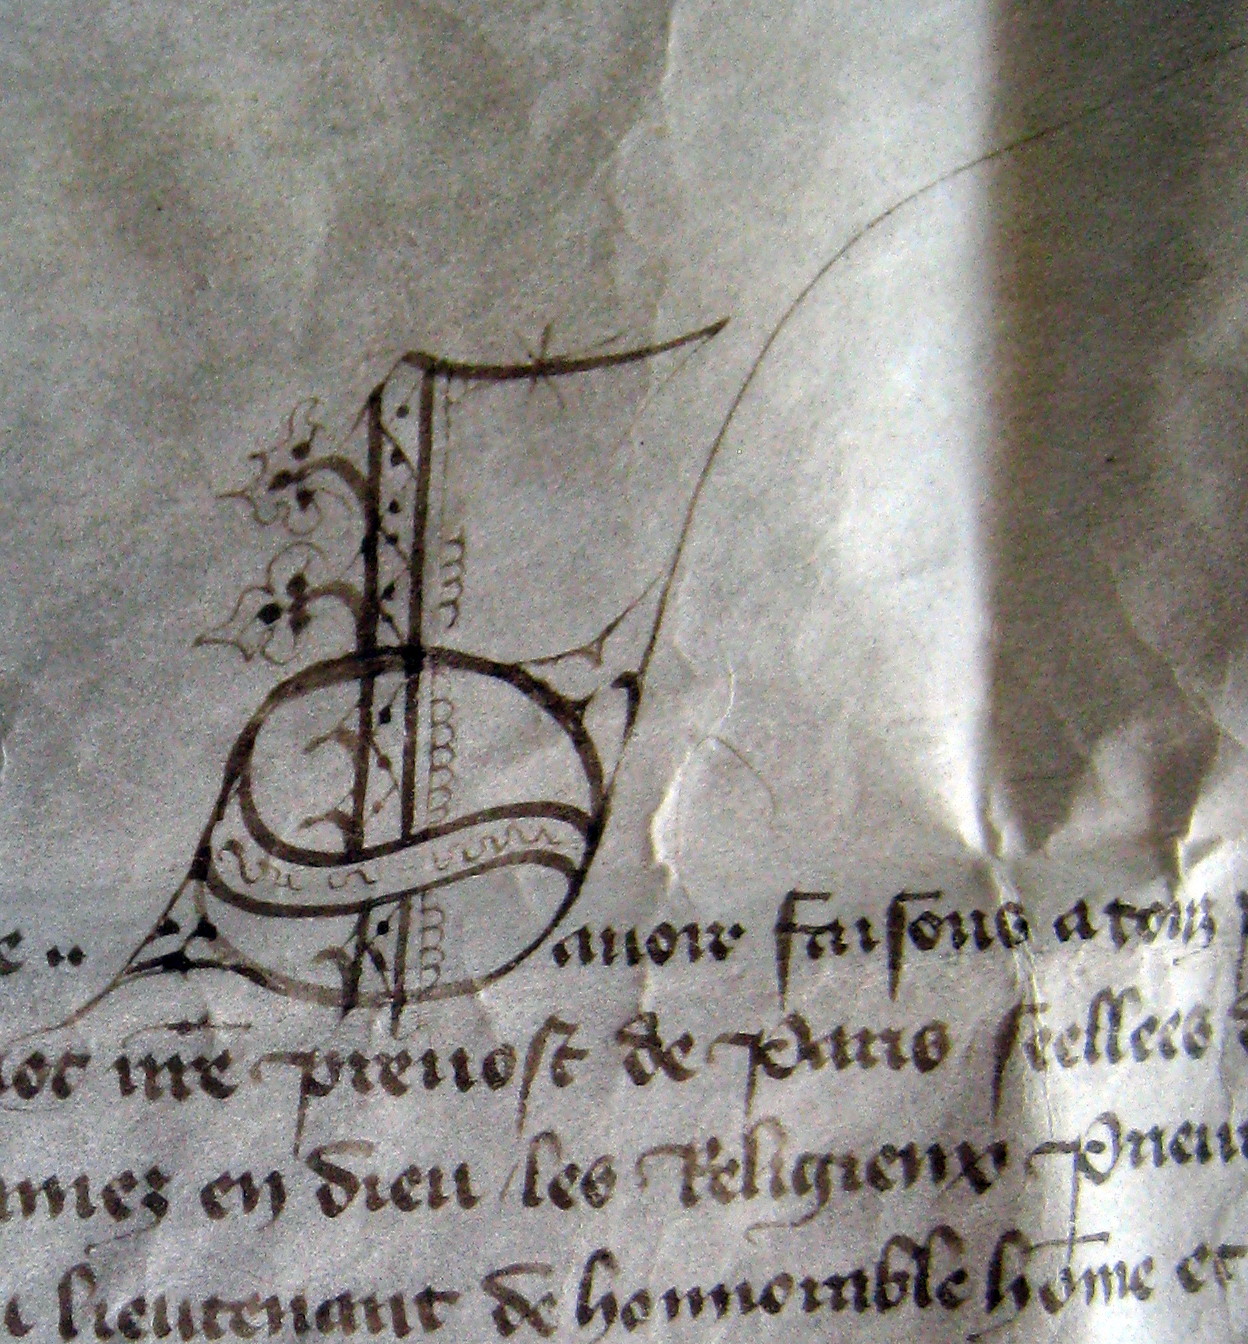 Sauoir faisons a tous
preuost de Paris seellees
en dieu les Religieux Prieur
lieutenant de honnorable home et